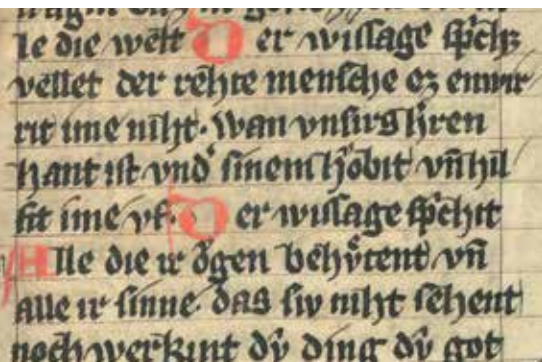 le die welt D er wissage sp̄chꝫ
vellet der rehte mensche eꝫ enwir
rit ime niht. Wan vnsirs h̓ren
hant ist vnd̓ sinem hͦbit vn̄ hil
fit ime vf. D er wissage sp̄chit
Alle die ir oͮgen behuͤtent vn̄
alle ir sinne. das siv niht sehent
noch werkint dv̂ ding dv̂ got